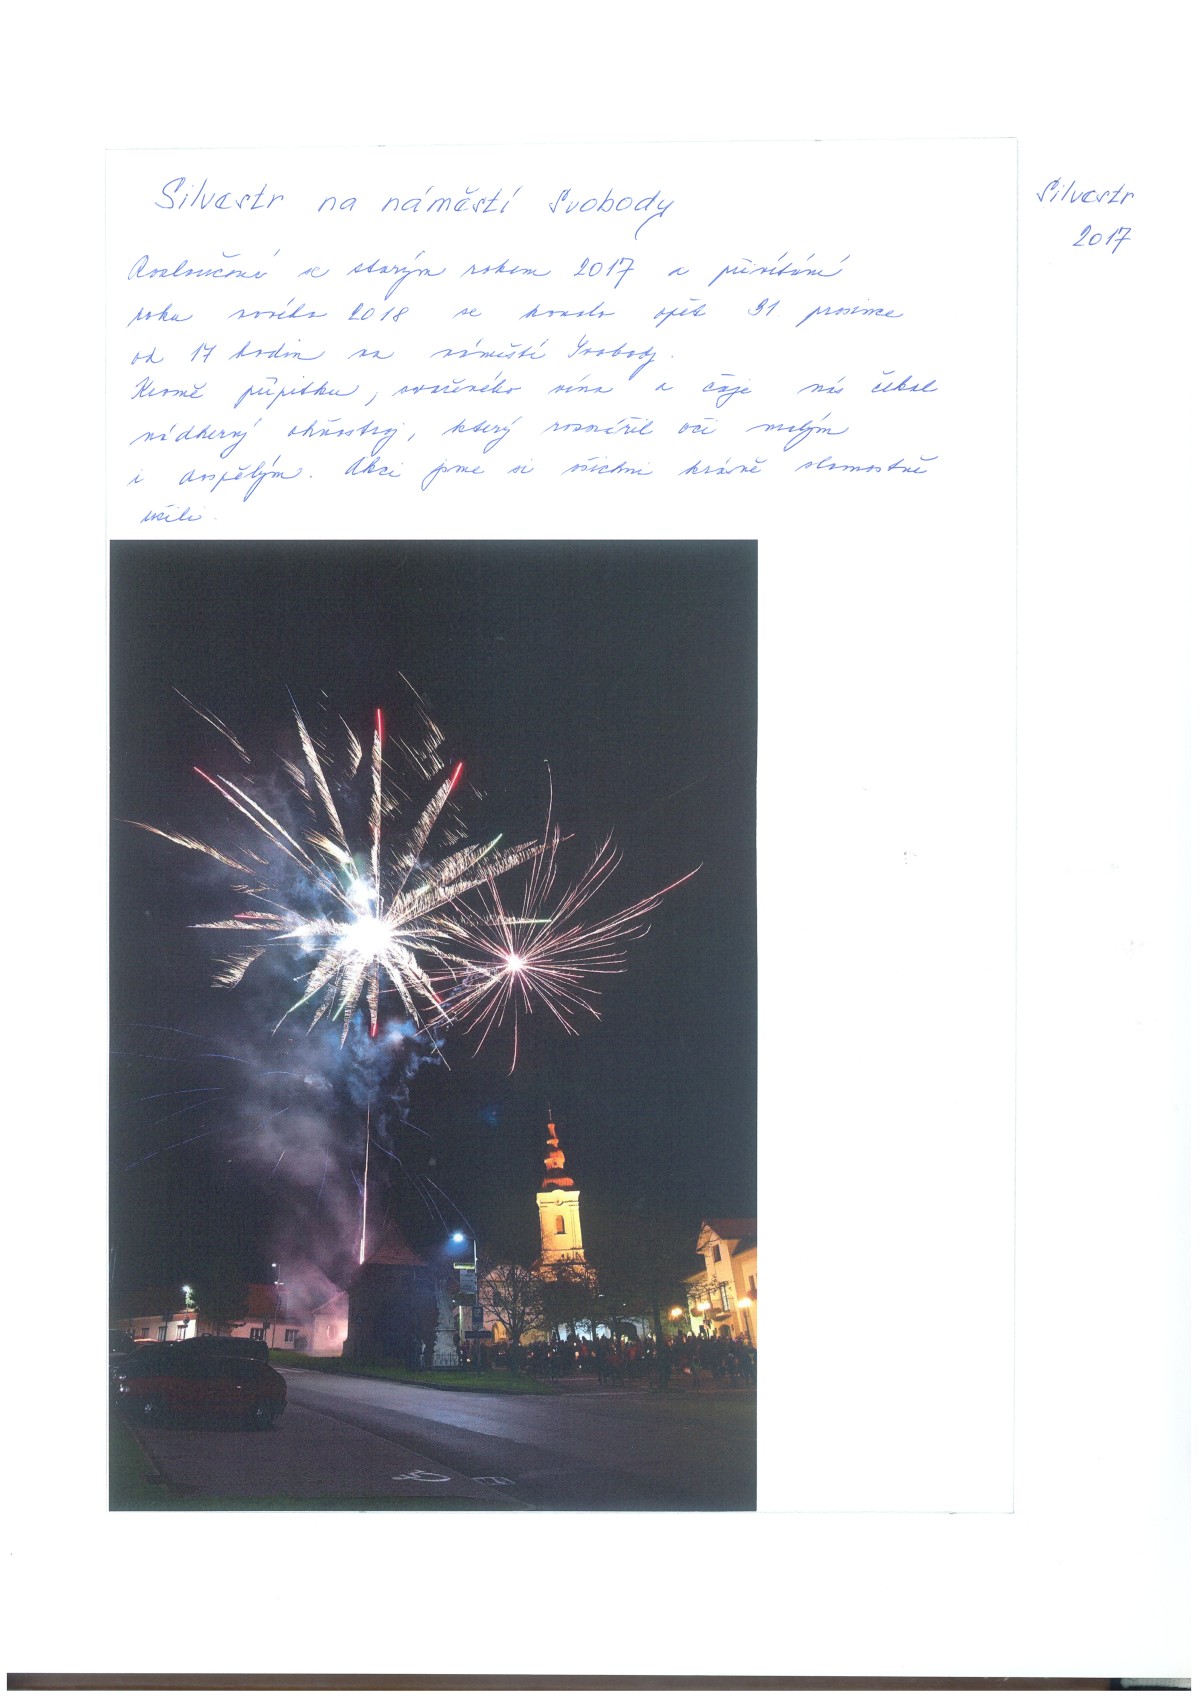 Silvestr na náměstí Svobody
Silvestr
2017
Rozloučení se starým rokem 2017 a přivítání
roku nového 2018 se konalo opět 31. prosince
od 17 hodin na náměstí Svobody.
Kromě přípitku, svařeného vína a čaje nás čekal
nádherný ohňostroj, který rozzářil oči malým
i dospělým. Akci jsme si všichni krásně slavnostně
užili.